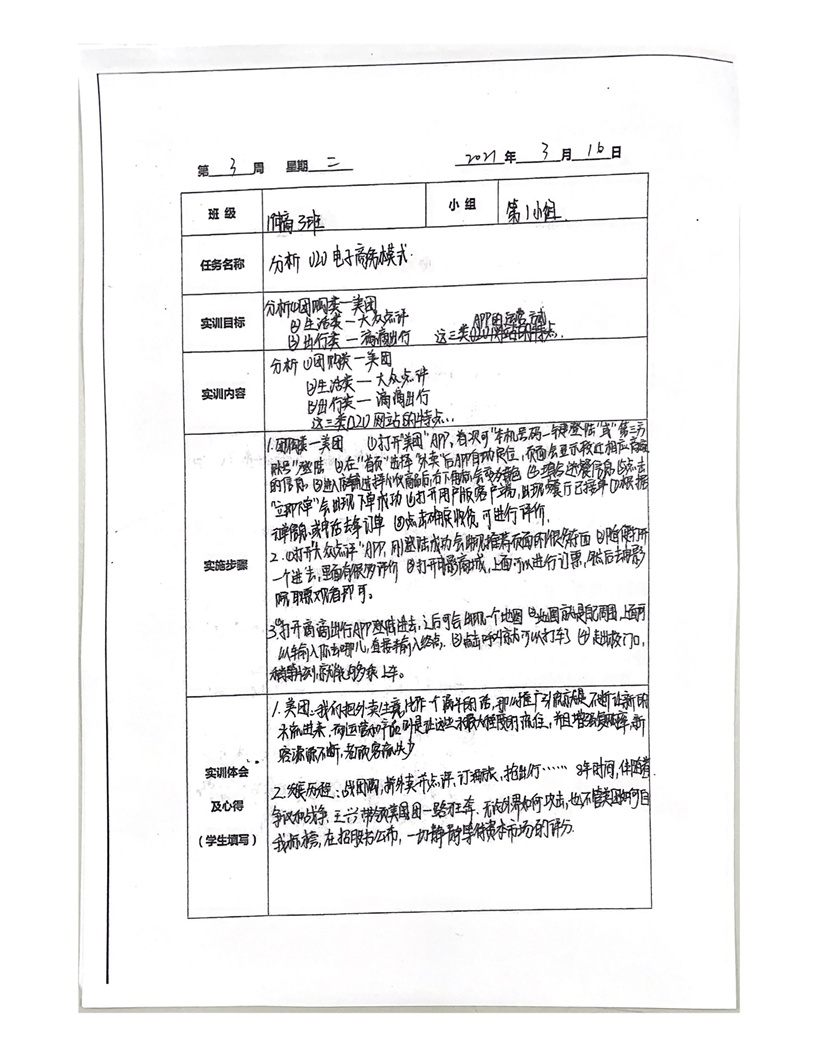 第 3 周 星期 二 2021 年 3 月 16 日
班 级 19电商3班 小 组 第1小组
任务名称 分析 O2O 电子商务模式.
实训目标 分析①团购类—美团
②生活类—大众点评 APP的运营
③出行类—滴滴出行 这三类O2O网站的特点.
实训内容 分析 ①团购类—美团
②生活类—大众点评
③出行类—滴滴出行
这三类O2O网站的特点..
实施步骤
1.团购类—美团 ①打开"美团"APP,首次可"本机号码一键登陆"或"第三方
账号"登陆 ②在"首页"选择"外卖"后APP自动定位,页面会显示附近相应商家
的信息 ③进入店铺选择小吃商品后,右下角图标会变为黄色 点击
"立即下单"会出现下单成功 打开用户版客户端,出现餐厅已接单 根据
订单信息 订单 点击确认收货,可进行评价.
2.①打开"大众点评"APP,用登陆成功会出现推荐页面有很多店面 ②随便打开
一个进去,里面有很多评价 ③打开电影商城,上面可以进行订票,然后去电影
院取票观看即可。
3.①打开滴滴出行APP登陆进去,之后可会出现一个地图 ②地图就是配周围,上面可
以输入你去哪儿,直接输入终点. ③点击呼叫就可以打车了 ④走出校门口,
稍等出到就能够乘上车。
实训体会
及心得
(学生填写)
1.美团:我们把外卖生意比作一个漏斗的话,那么推广引流就是不断让新的
水流进来.而运营和产品则是让这些水最大程度的流住,并且增强复购率,新
客源源不断,老顾客流失少
2.发展历程:战团购,折外卖开点评,订酒旅,抢出行…… 8年时间,伴随着
争议和战争.王兴带领美团一路狂奔.无论外界如何攻击,也不管美团如何自
我标榜,在招股书公布,一切静静等待资本市场的评分.